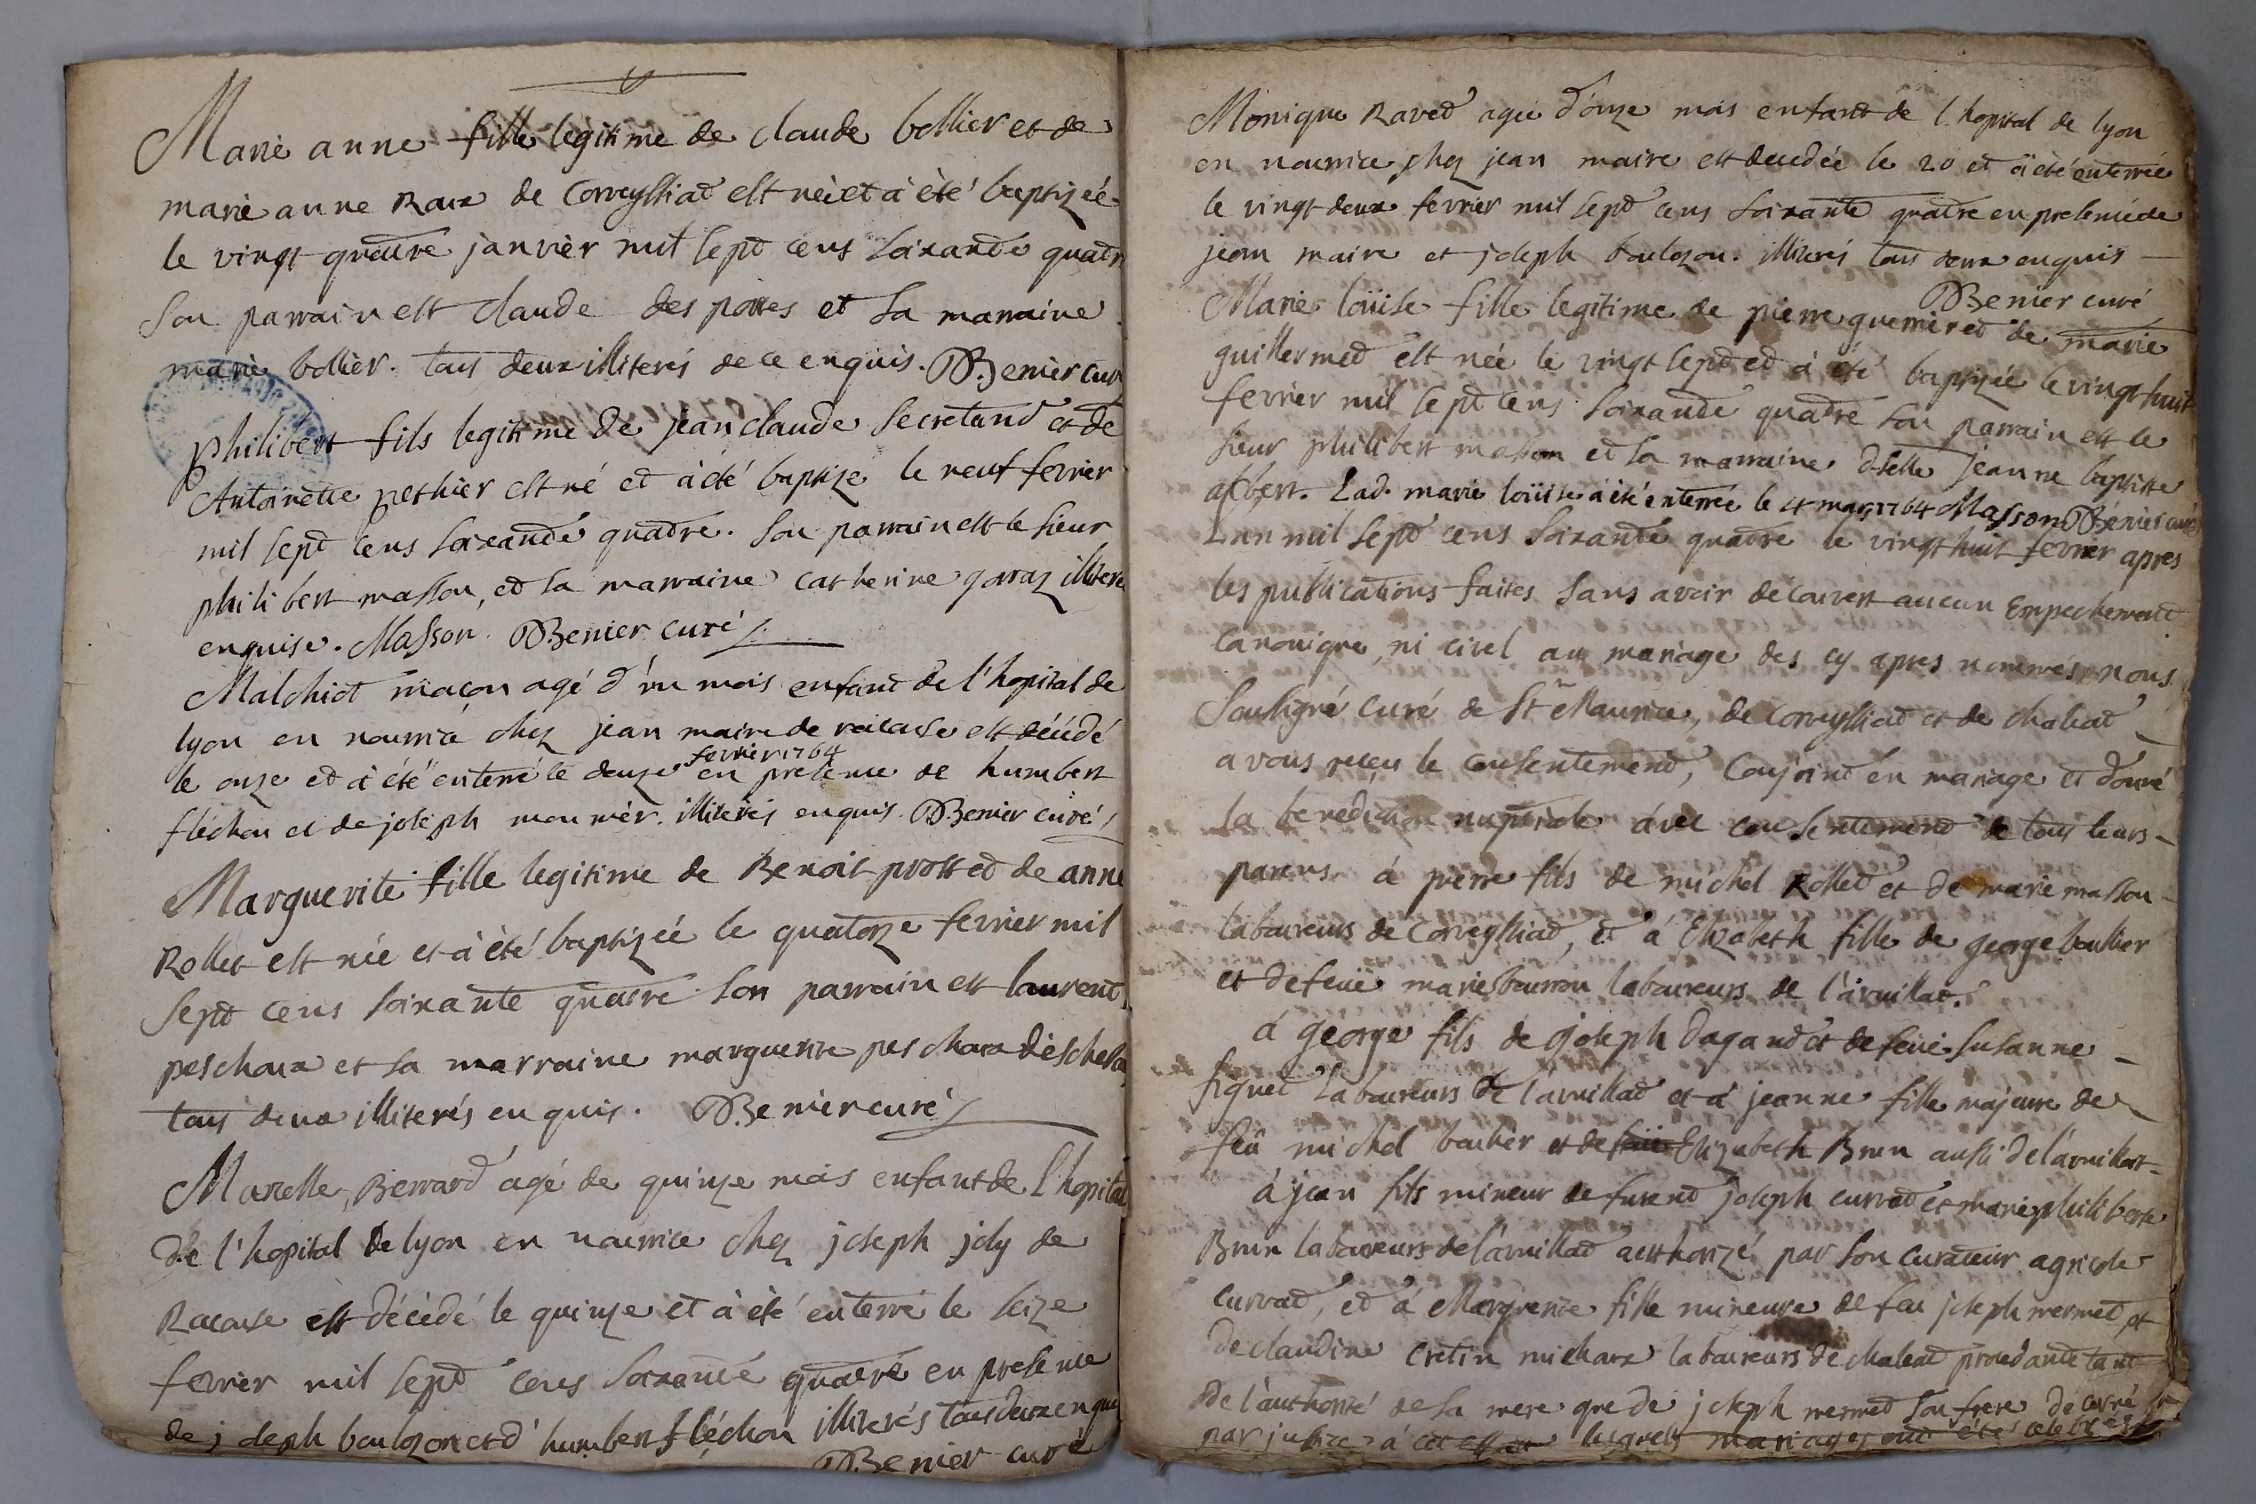 Marie anne fille legitime de claude bollier et de
marie anne Roux de Corveyssiat est née et à été baptizée
le vingt quatre janvier mil sept cens soixante quatre
son parrain est claude des portes et sa marraine
marie bollier. tous deux illiterés de ce enquis. DBenier curé
philibert fils legitime de jean claude secretand et de
Antoinette pethier est né et à été baptizé le neuf fevrier
mil sept cens soixante quatre. son parrain est le sieur
philibert masson, et sa marraine catherine gavaz illiteré
enquise. Masson DBenier curé
Malchiot maçon agé d'un mois enfant de l'hopital de
lyon en nourrice chez jean maire de racouse est décédé
fevrier 1764
le onze et à été enterré le douze en presence de humbert
fléchon et de joseph mounier. illiterés enquis. DBenier curé
Marguerite fille legitime de Benoit prost et de anne
Rollet est née et à été baptizée le quatorze fevrier mil
sept cens soixante quatre son parrain est laurent
peschoux et sa marraine marguerite peschoux
tous deux illiterés enquis. DBenier curé
Marelle Berrard agé de quinze mois enfant de l'hopital
de l'hopital de lyon en nourrice chez joseph joly de
Racouse est décédé le quinze et à été enterré le seize
fevrier mil sept cens soixante quatre en presence
de joseph boulozon et d'humbert fléchon illiterés tous deux enquis
DBenier curé
Monique Ravet agée d'onze mois enfant de l'hopital de lyon
en nourrice chez jean maire est decedée le 20 et à été enterrée
le vingt deux fevrier mil sept cens soixante quatre en presence de
jean maire et joseph boulozon. illiterés tous deux enquis
DBenier curé
Marie loüise fille legitime de pierre guerrier et de marie
guillermet est née le vingt sept et à été baptizée le vingt huit
fevrier mil sept cens soixante quatre son parrain est le
sieur philibert masson et sa marraine dselle jeanne baptiste
aebert. Lad. marie loüise à été enterrée le 4 mars 1764 Masson DBenier curé
L'an mil sept cens soixante quatre le vingt huit fevrier apres
les publications faites sans avoir decouvert aucun Empechement
canonique, ni civel au mariage des cy apres nommés, nous
soussigné curé de St Maurice, de Corveyssiat et de chaleat
avons reçeu le consentement, conjoint en mariage et donné
la benediction nuptiale avec consentement de tous leurs
parens à pierre fils de michel Rollet et de marie masson
laboureurs de Corveyssiat, et à Elizabeth fille de george boulier
et de feüe marie bourron laboureurs de l'arnillat.
à george fils de joseph dagand et de feüe susanne
figuet laboureurs de l'arnillat et à jeanne fille majeure de
feü michel boulier et de feüe Elizabeth Brun aussi de l'arnillat
à jean fils mineur de furent joseph curvat et marie philiberte
Brun laboureurs de l'arnillat authorizé par son curateur agricole
curvat, et à Marguerite fille mineure de feu joseph mermet et
de claudine cretin michaux laboureurs de chaleat procedante tant
de l'authorité de sa mere que de joseph mermet son frere decerné
par justice à cet effet lesquels mariages ont été celebrés